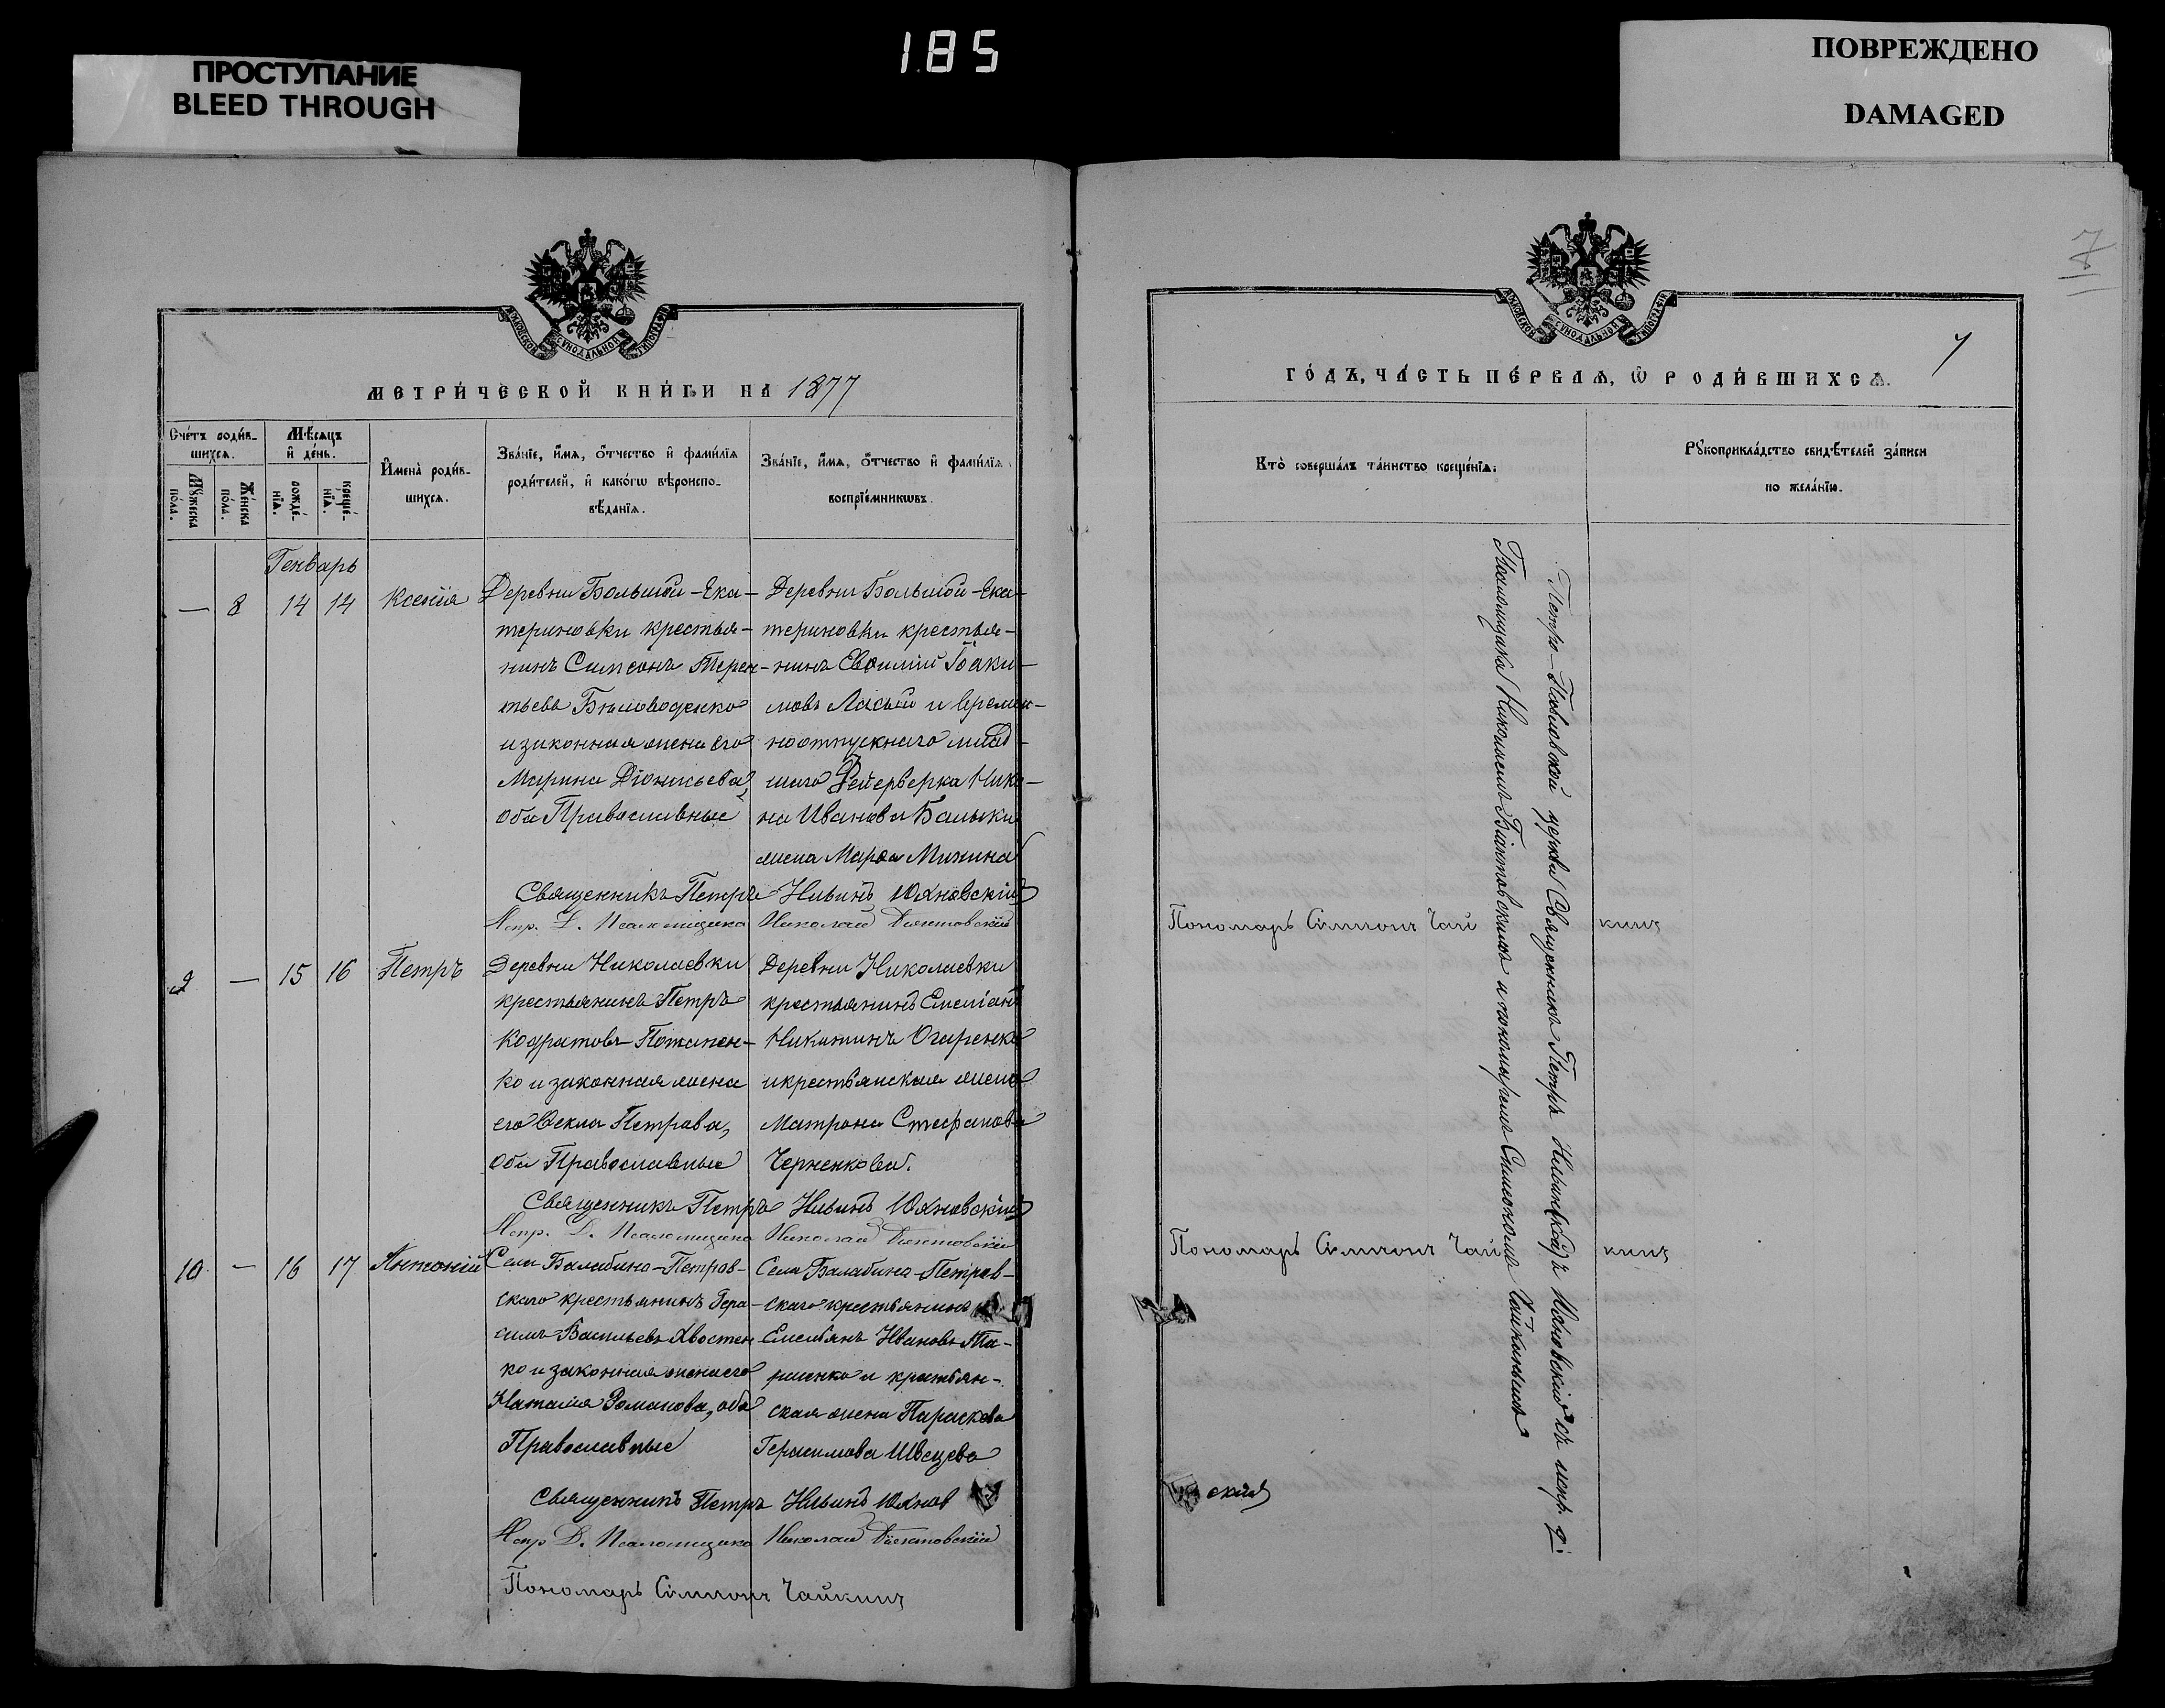 185
ПРОСТУПАНИЕ
BLEED THROUGH
ПОВРЕЖДЕНО
DAMAGED
7
7
МЕТРИ́ЧЕСКОЙ КНИ́ГИ НА 1877
Сче́тъ роди́в-
шихся.
Мѣ́сяцъ
и҆ де́нь.
Мꙋ́жеска
по́ла.
Же́нска
по́ла.
рожде́-
нїѧ.
креще́-
нїѧ.
И҆мена̀ роди́в-
шихся.
Зва́нїе, и҆́мѧ, ѻ҆́тчество и҆ фами́лїѧ
роди́телей, и҆ како́гѡ вѣроиспо-
вѣ́данїѧ.
Зва́нїе, и҆́мѧ, ѻ҆́тчество и҆ фами́лїѧ
воспрїе́мникѡвъ.
Генварь
— 8 14 14 Ксенія
Деревни Большой-Ека-
териновки крестья-
нинъ Симеонъ Терен-
тьевъ Бѣловоденко
и законная жена его
Марина Діонисьева,
оба Православные
Деревни Большой-Ека-
териновки крестья-
нинъ Евѳимій Іоаки-
мовъ Лисый и времен-
ноотпускнаго млад-
шаго Фейерверка Нико-
на Иванова Балыки
жена Марѳа Минина
Священникъ Петръ Ильинъ Юхновскій
Испр. Д. Псаломщика Николай Біянтовскій
Пономарь Симеонъ Чайкинъ
9 — 15 16 Петръ
Деревни Николаевки
крестьянинъ Петръ
Кодратовъ Потапен-
ко и законная жена
его Ѳекла Петрова,
оба Православные
Деревни Николаевки
крестьянинъ Емеліанъ
Никитинъ Огаренко
и крестьянская жена
Матрона Стефанова
Черненкова.
Священникъ Петръ Ильинъ Юхновскій
Испр. Д. Псаломщика Николай Біянтовскій
Пономарь Симеонъ Чайкинъ
10 — 16 17 Антоній
Села Балабино-Петров-
скаго крестьянинъ Гера-
симъ Васильевъ Хвостен
ко и законная жена его
Наталія Романова, оба
Православные
Села Балабина-Петров-
скаго крестьянинъ
Емельянъ Ивановъ Та-
ранко и крестьян-
ская жена Параскева
Герасимова Швецева
Священникъ Петръ Ильинъ Юхнов скій
Испр Д. Псаломщика Николай Біянтовскій
Пономарь Симеонъ Чайкинъ
ГО́ДЪ, ЧА́СТЬ ПЕ́РВАѦ, Ѡ҆ РОДИ́ВШИХСѦ.
Кто̀ соверша́лъ та́инство креще́нїѧ.
Рꙋкоприкла́дство свидѣ́телей за́писи
по жела́нїю.
Петро-Павловской церкви Священникъ Петръ Ильинъ Юхновскій съ испр. д.
Псаломщика Николаемъ Біянтовскимъ и пономаремъ Симеономъ Чайкинымъ